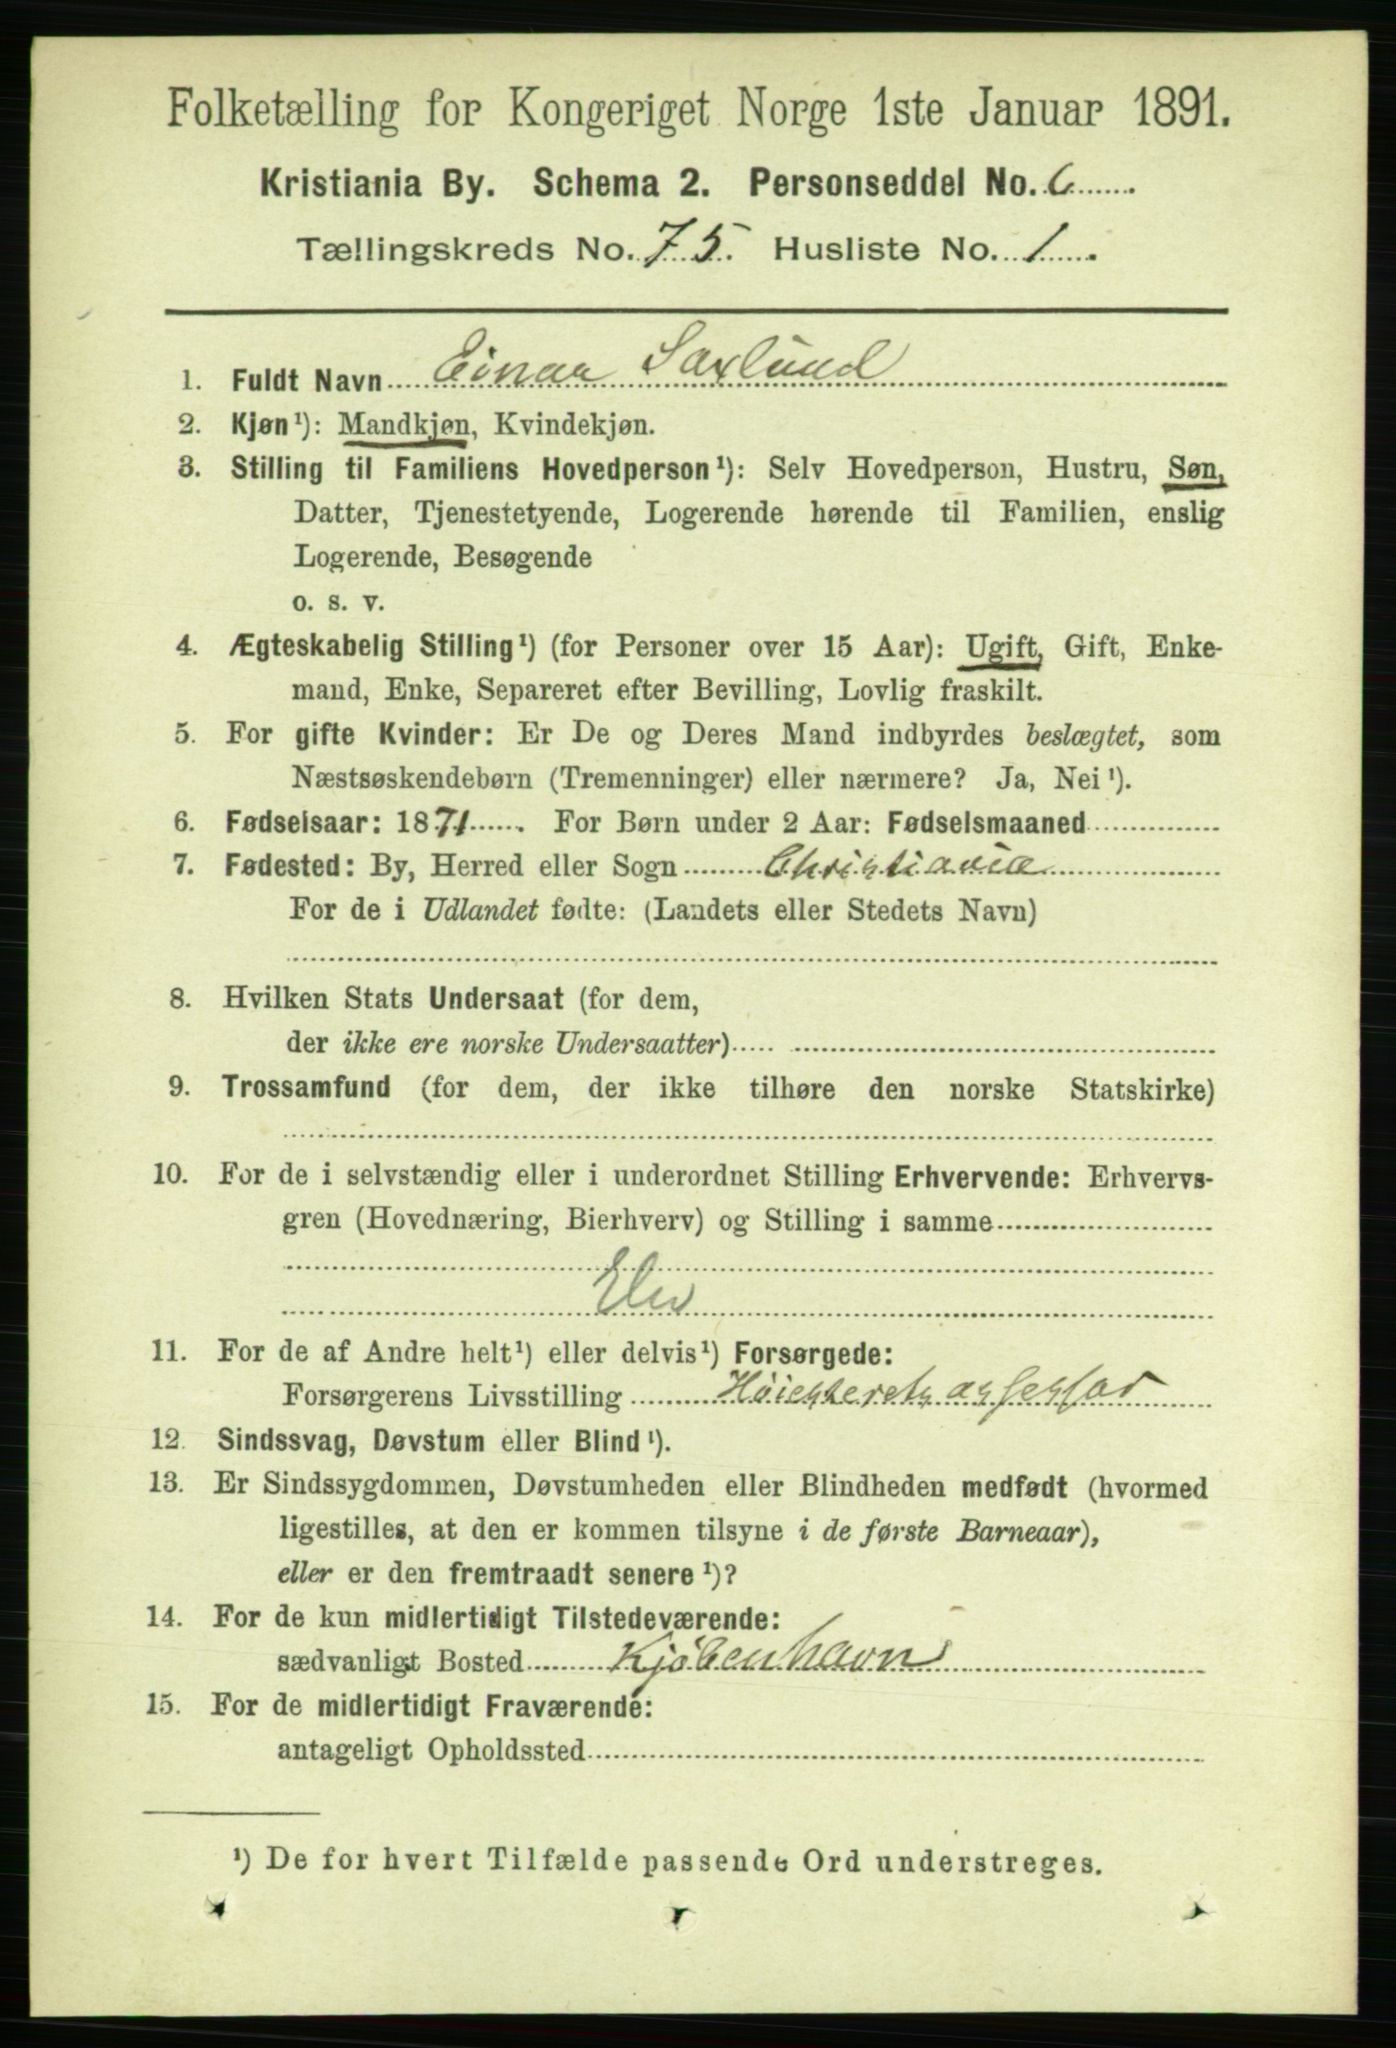 Folketælling for Kongeriget Norge 1ste Januar 1891.
Kristiania By. Schema 2. Personseddel No. 6.
Tællingskreds No. 75. Husliste No. 1.
1. Fuldt Navn Einar Saxlund
2. Kjøn¹): Mandkjøn, Kvindekjøn.
3. Stilling til Familiens Hovedperson¹): Selv Hovedperson, Hustru, Søn,
Datter, Tjenestetyende, Logerende hørende til Familien, enslig
Logerende, Besøgende
o. s. v.
4. Ægteskabelig Stilling¹) (for Personer over 15 Aar): Ugift, Gift, Enke-
mand, Enke, Separeret efter Bevilling, Lovlig fraskilt.
5. For gifte Kvinder: Er De og Deres Mand indbyrdes beslægtet, som
Næstsøskendebørn (Tremenninger) eller nærmere? Ja, Nei¹).
6. Fødselsaar: 1871. For Børn under 2 Aar: Fødselsmaaned
7. Fødested: By, Herred eller Sogn Christiania
For de i Udlandet fødte: (Landets eller Stedets Navn)
8. Hvilken Stats Undersaat (for dem,
der ikke ere norske Undersaatter)
9. Trossamfund (for dem, der ikke tilhøre den norske Statskirke)
10. For de i selvstændig eller i underordnet Stilling Erhvervende: Erhvervs-
gren (Hovednæring, Bierhverv) og Stilling i samme
Elev
11. For de af Andre helt¹) eller delvis¹) Forsørgede:
Forsørgerens Livsstilling Høiesteretsassessor
12. Sindssvag, Døvstum eller Blind¹).
13. Er Sindssygdommen, Døvstumheden eller Blindheden medfødt (hvormed
ligestilles, at den er kommen tilsyne i de første Barneaar),
eller er den fremtraadt senere¹)?
14. For de kun midlertidigt Tilstedeværende:
sædvanligt Bosted Kjöbenhavn
15. For de midlertidigt Fraværende:
antageligt Opholdssted
¹) De for hvert Tilfælde passende Ord understreges.